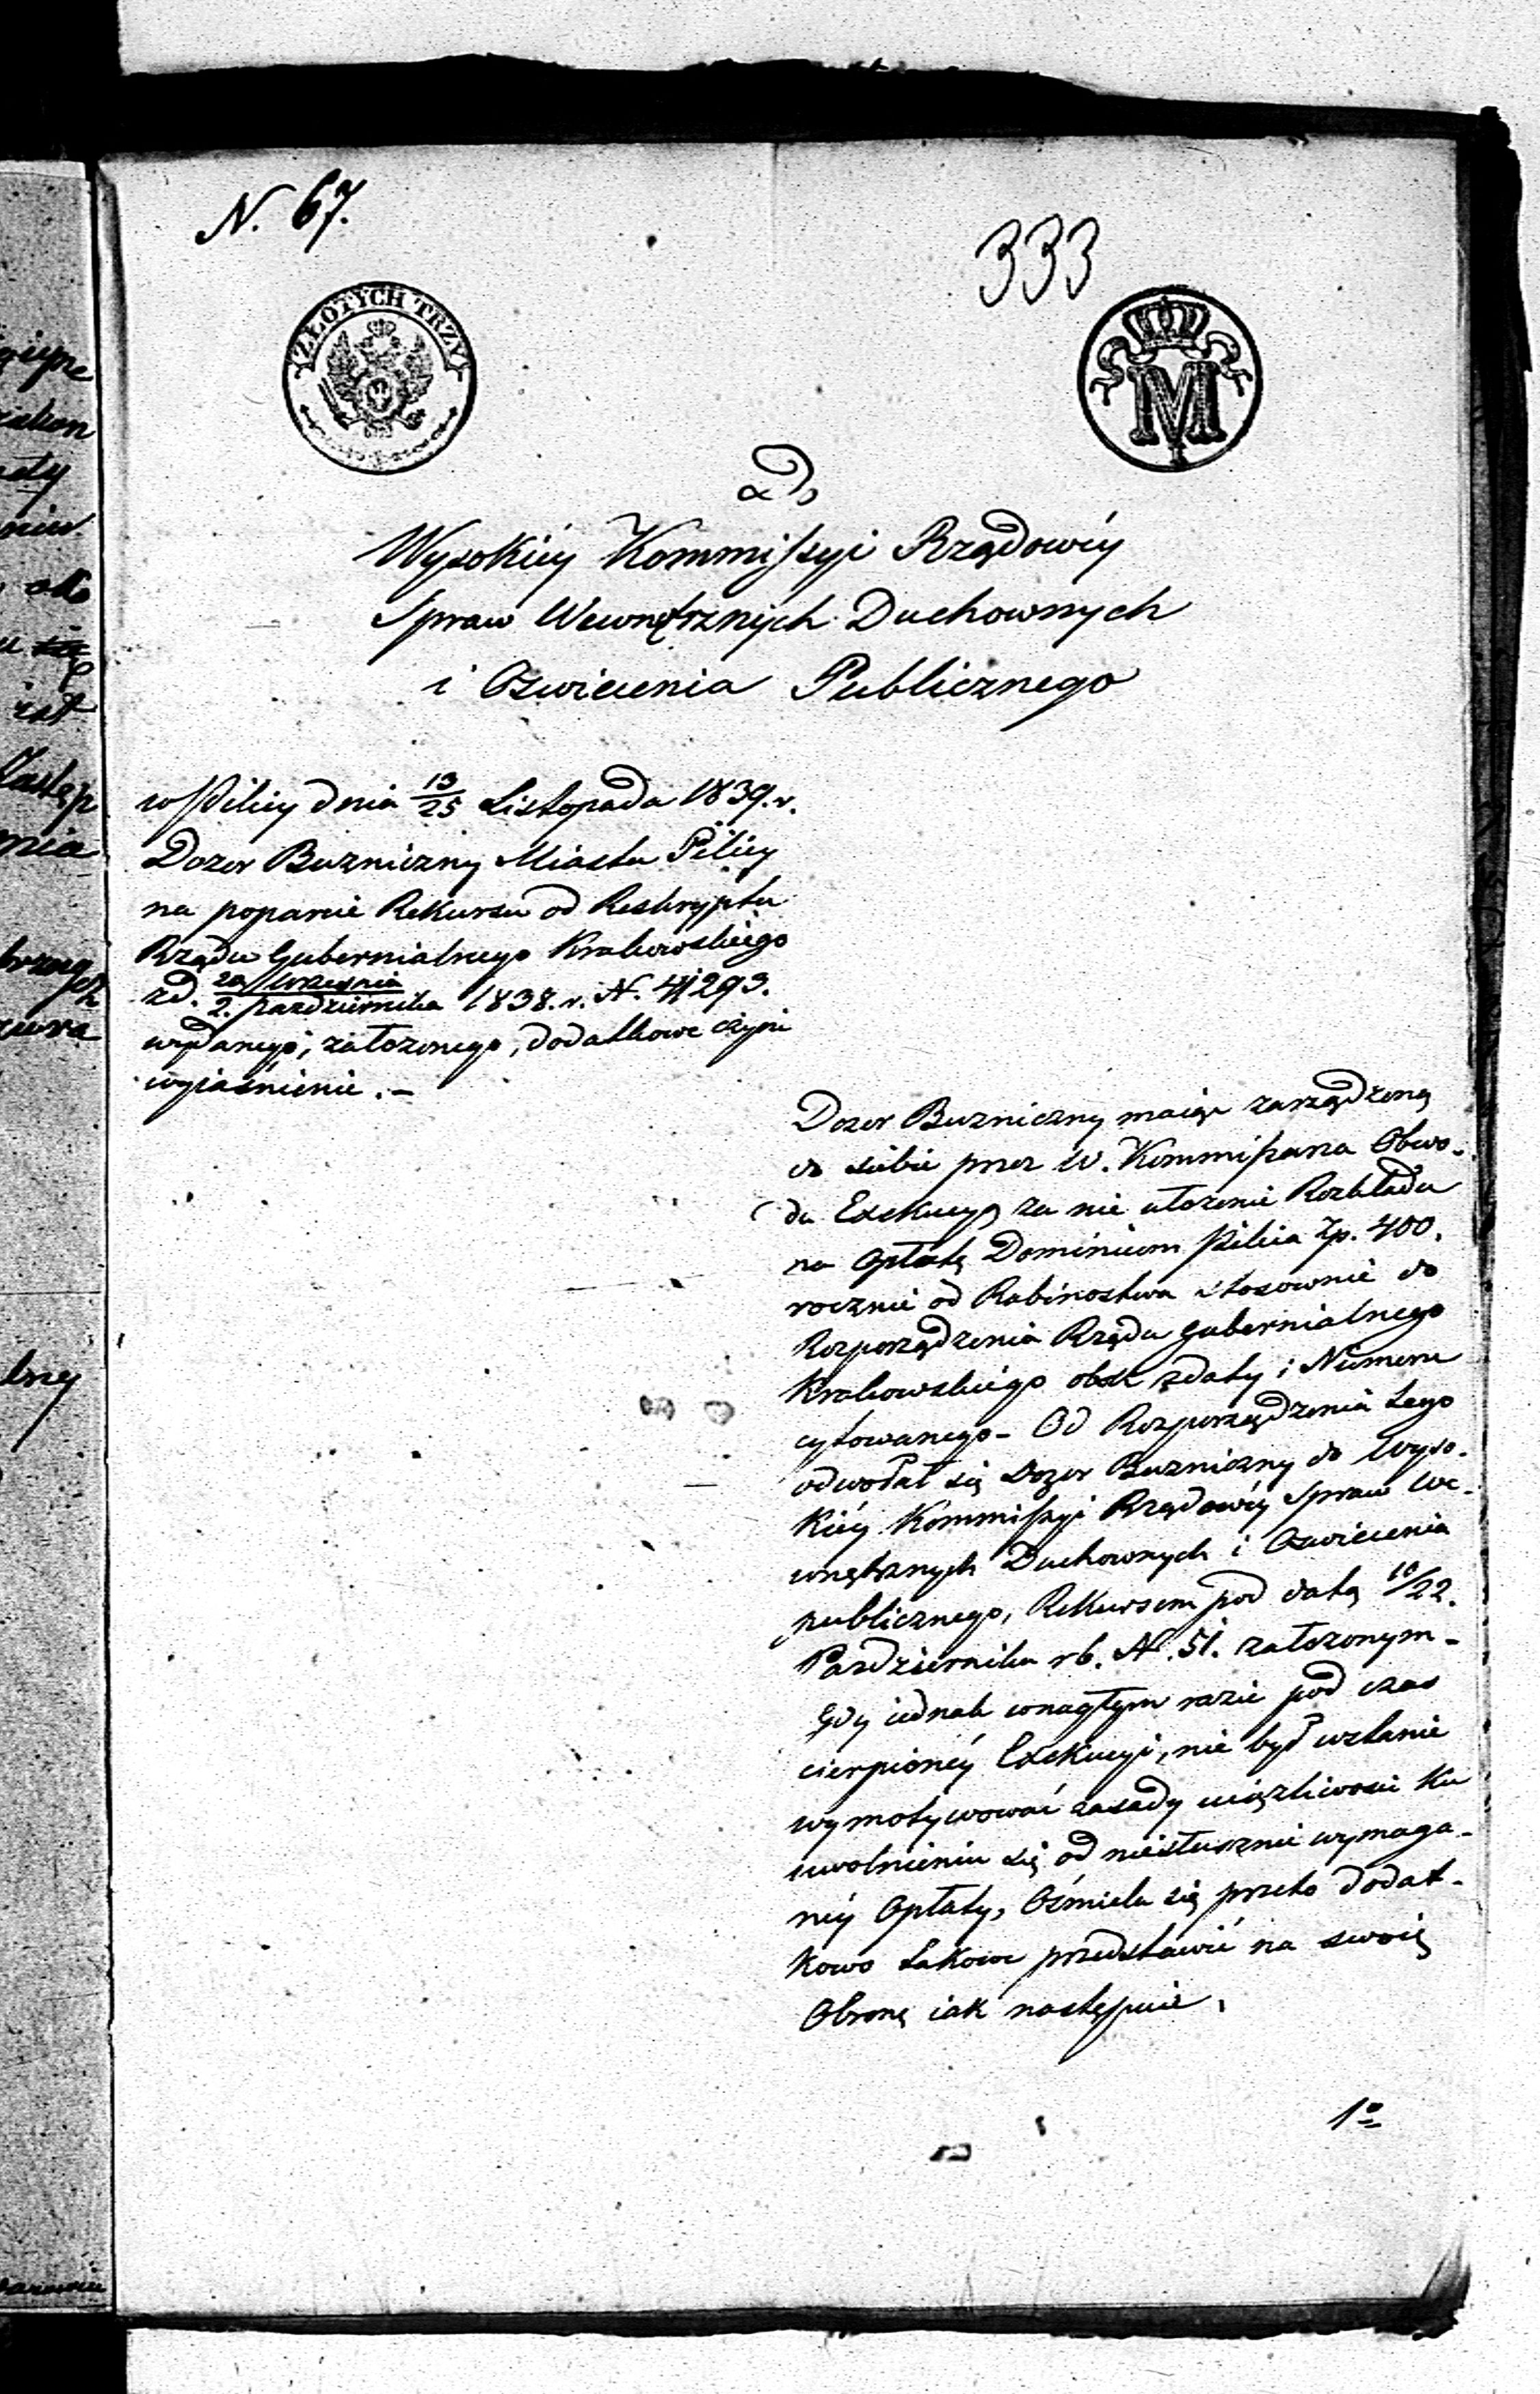 N. 67.
333
ZŁOTYCH TRZY
M
Do
Wysokiéy Kommissyi Rządowéy
Spraw Wewnętrznych Duchownych
i Oswiecenia Publicznego
w Pilicy dnia 13/25 Listopada 1839. r.
Dozor Buzniczny Miasta Pilicy
na poparcie Rekursu od Reskryptu
Rządu Gubernialnego Krakowskiego
zd. 20 Września / 2. Pazdziernika 1838. r. N. 41293.
wydanego, założonego, dodatkowe czyni
wyiaśnienie. -
Dozor Buzniczny maiąc zarządzoną
do siebie przez W. Kommissarza Obwo-
du Exekucyą za nie ułożenie Rozkładu
na Opłatę Dominium Pilica Zp. 400.
rocznie od Rabinostwa stosownie do
Rozporządzenia Rządu Gubernialnego
Krakowskiego obok zdaty i Numeru
cytowanego - Od Rozporządzenia tego
odwołał się Dozor Buzniczny do Wyso-
kiéy Kommissyi Rządowéy Spraw We-
wnętrznych Duchownych i Oswiecenia
publicznego, Rekursem pod datą 10/22.
Pazdziernika rb. N. 51. założonym -
Gdy iednak wnagłym razie pod czas
cierpionéy Exekucyi, nie był wstanie
wymotywować zasady uciążliwosci ku
uwolnieniu się od niesłusznie wymaga-
néy Opłaty, Ośmiela się przeto dodat-
kowo takowe przedstawić na swoię
Obronę iak następuie,
1o